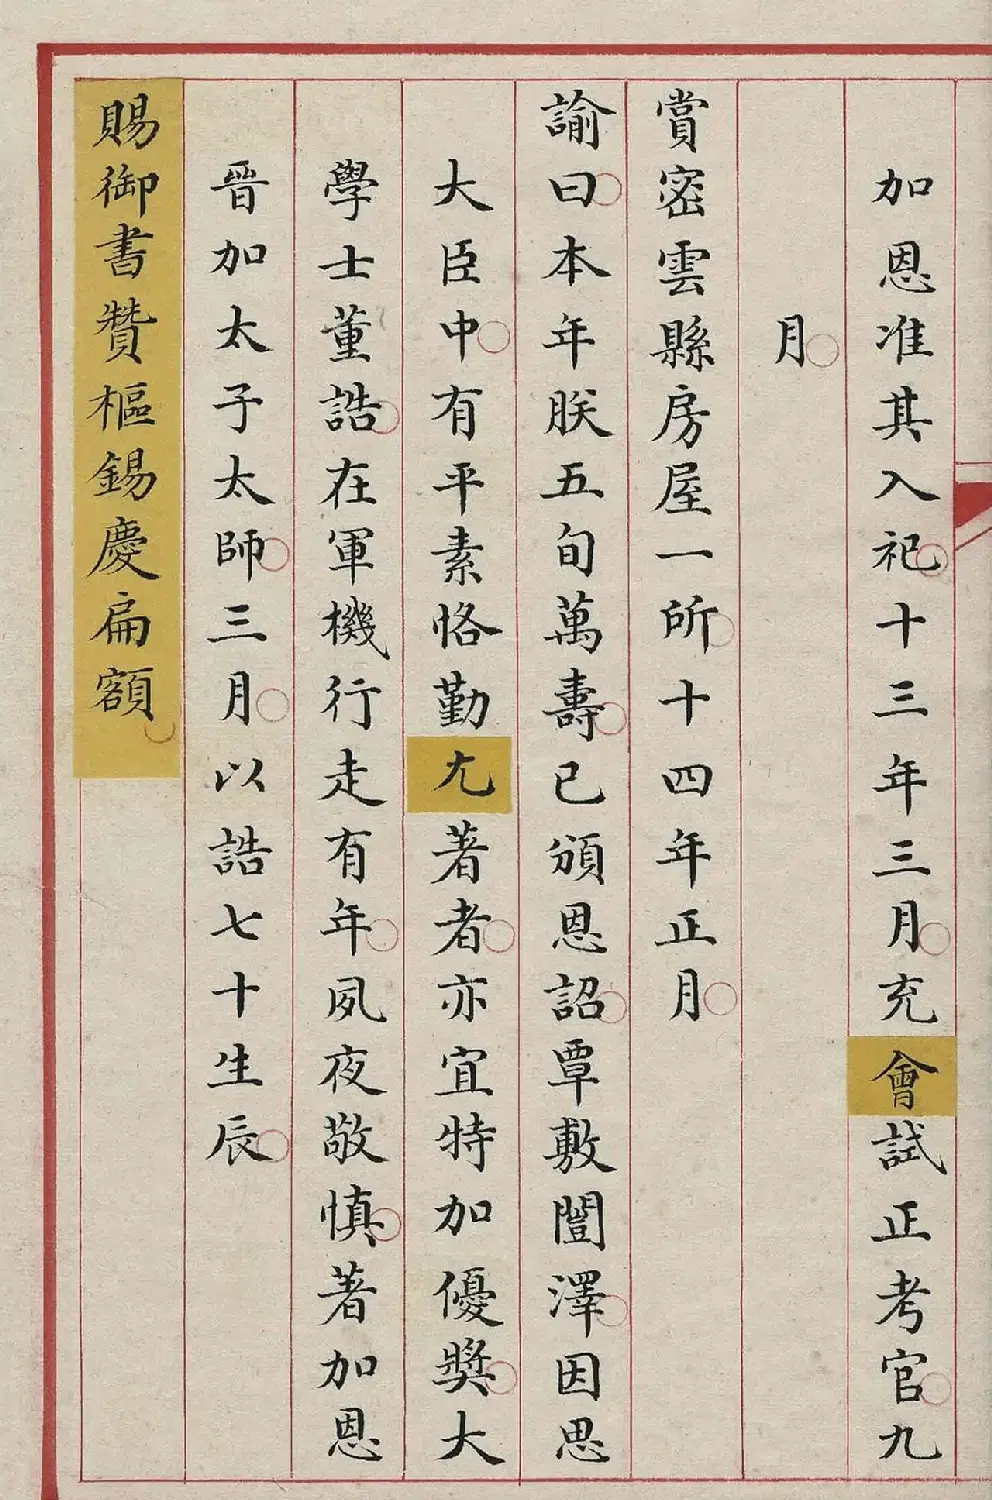 加恩准其入祀十三年三月充會試正考官九
月
賞密雲縣房屋一所十四年正月
諭曰本年朕五旬萬壽已頒恩詔覃敷闓澤因思
大臣中有平素恪勤尤著者亦宜特加優獎大
學士董誥在軍機行走有年夙夜敬慎著加恩
晉加太子太師三月以誥七十生辰
賜御書贊樞錫慶扁額